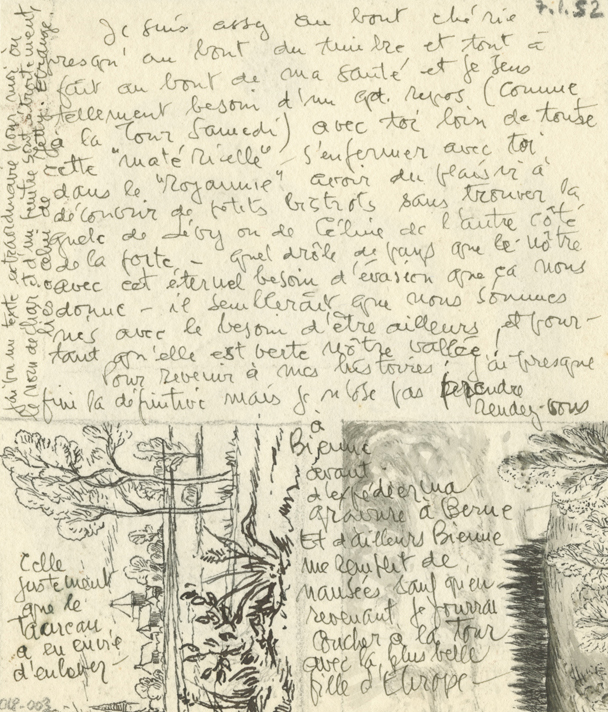 7.1.52
Je suis assez au bout chérie
presqu'au bout du timbre et tout à
fait au bout de ma santé et je sens
tellement besoin d'un gd. repos (comme
à la Tour Samedi) avec toi loin de toute
cette "matérielle" - s'enfermer avec toi
dans le "Royaumie" avoir du plaisir à
découvrir de petits bistrots sans trouver la
gueule de Lévy ou de Céline de l'autre côté
de la porte - quel drôle de pays que le nôtre
avec cet éternel besoin d'évasion que ça nous
donne - il semblerait que nous sommes
nés avec le besoin d'être ailleurs, et pour-
tant qu'elle est verte nôtre vallée!
Pour revenir à mes histoires, j'ai presque
fini la définitive mais je n'ose pas prendre
rendez-vous
à
Bienne
avant
d'expédier ma
gravure à Berne
Et d'ailleurs Bienne
me remplit de
nausées sauf qu'en
revenant je pourrai
coucher à la Tour
avec la plus belle
fille d'Europe -
Celle
justement
que le
Taureau
a eu envie
d'enlever -
J'ai lu un texte extraordinaire pour moi où
le nom de char et d'un peintre sont étroitement
liés celui de
018-003